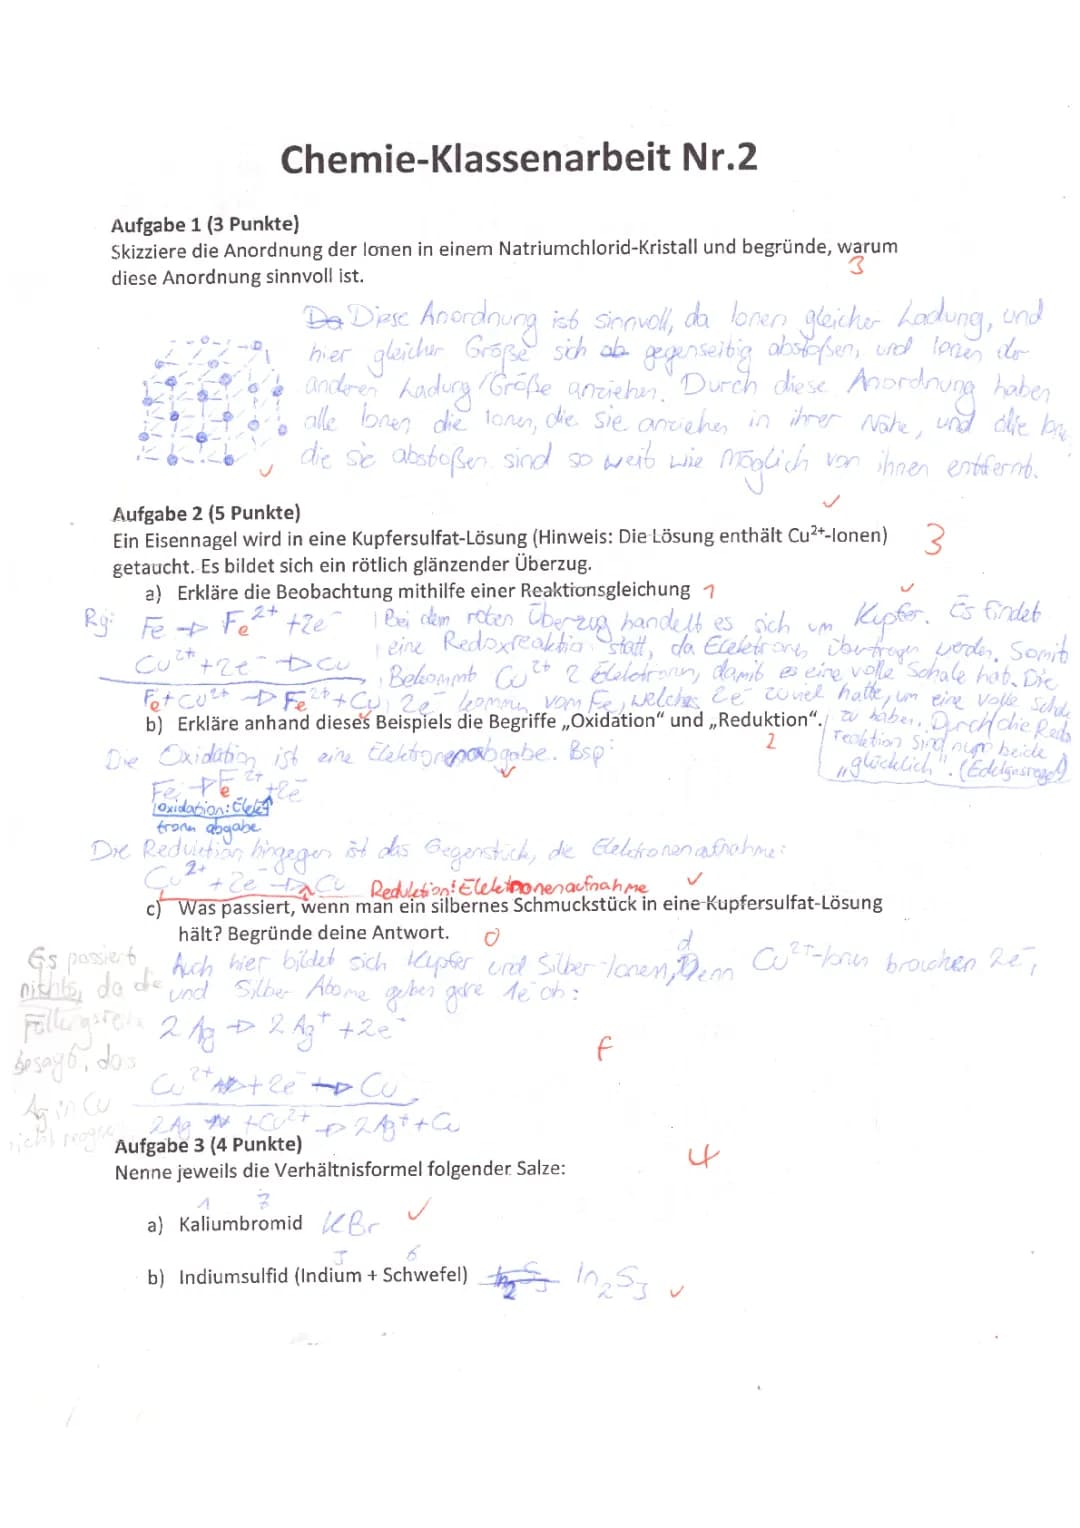 Chemie-Klassenarbeit Nr.2
Aufgabe 1 (3 Punkte)
Skizziere die Anordnung der Ionen in einem Natriumchlorid-Kristall und begründe, warum
diese Anordnung sinnvoll ist.
3
Diese Anordnung ist sinnvoll, da Ionen gleicher Ladung, und
hier gleicher Größe sich gegenseitig abstoßen, und Ionen der
anderen Ladung/Größe anziehen. Durch diese Anordnung haben
alle Ionen die Ionen, die sie anziehen in ihrer Nähe, und die
die sie abstoßen sind so weit wie möglich von ihnen entfernt.
Aufgabe 2 (5 Punkte)
3
Ein Eisennagel wird in eine Kupfersulfat-Lösung (Hinweis: Die Lösung enthält Cu²⁺-Ionen)
getaucht. Es bildet sich ein rötlich glänzender Überzug.
a) Erkläre die Beobachtung mithilfe einer Reaktionsgleichung 1
Rg: Fe → Fe²⁺ + 2e⁻
Cu²⁺ + 2e⁻ → Cu
Fe + Cu²⁺ → Fe²⁺ + Cu
Bei dem roten Überzug handelt es sich um Kupfer. Es findet
eine Redoxreaktion statt, da Elektronen übertragen werden. Somit
Bekommt Cu²⁺ 2 Elektronen, damit es eine volle Schale hat. Die
2e⁻ kommen vom Fe, welches 2e⁻ zuviel hatte, um eine volle Schale
zu haben. Durch die Redox
reaktion sind nun beide
„glücklich". (Edelgasregel)
b) Erkläre anhand dieses Beispiels die Begriffe „Oxidation" und „Reduktion".
2
Die Oxidation ist eine Elektronenabgabe. Bsp:
Fe → Fe²⁺ + 2e⁻
Oxidation: Elek
tronen abgabe
Die Reduktion hingegen ist das Gegenstück, die Elektronenaufnahme:
Cu²⁺ + 2e⁻ → Cu Reduktion: Elektronenaufnahme
c) Was passiert, wenn man ein silbernes Schmuckstück in eine Kupfersulfat-Lösung
hält? Begründe deine Antwort. 0
Auch hier bildet sich Kupfer und Silber-Ionen, denn Cu²⁺-Ionen brauchen 2e⁻,
und Silber Atome geben gere 1e⁻ ab:
2 Ag → 2 Ag⁺ + 2e⁻
f
Cu²⁺ + 2e⁻ → Cu
2Ag + Cu²⁺ → 2Ag⁺ + Cu
Es passiert
nichts, da die
besagt, das
Ag in Cu
nicht
Aufgabe 3 (4 Punkte)
4
Nenne jeweils die Verhältnisformel folgender Salze:
1 7
a) Kaliumbromid KBr
3 6
b) Indiumsulfid (Indium + Schwefel) In₂S₃